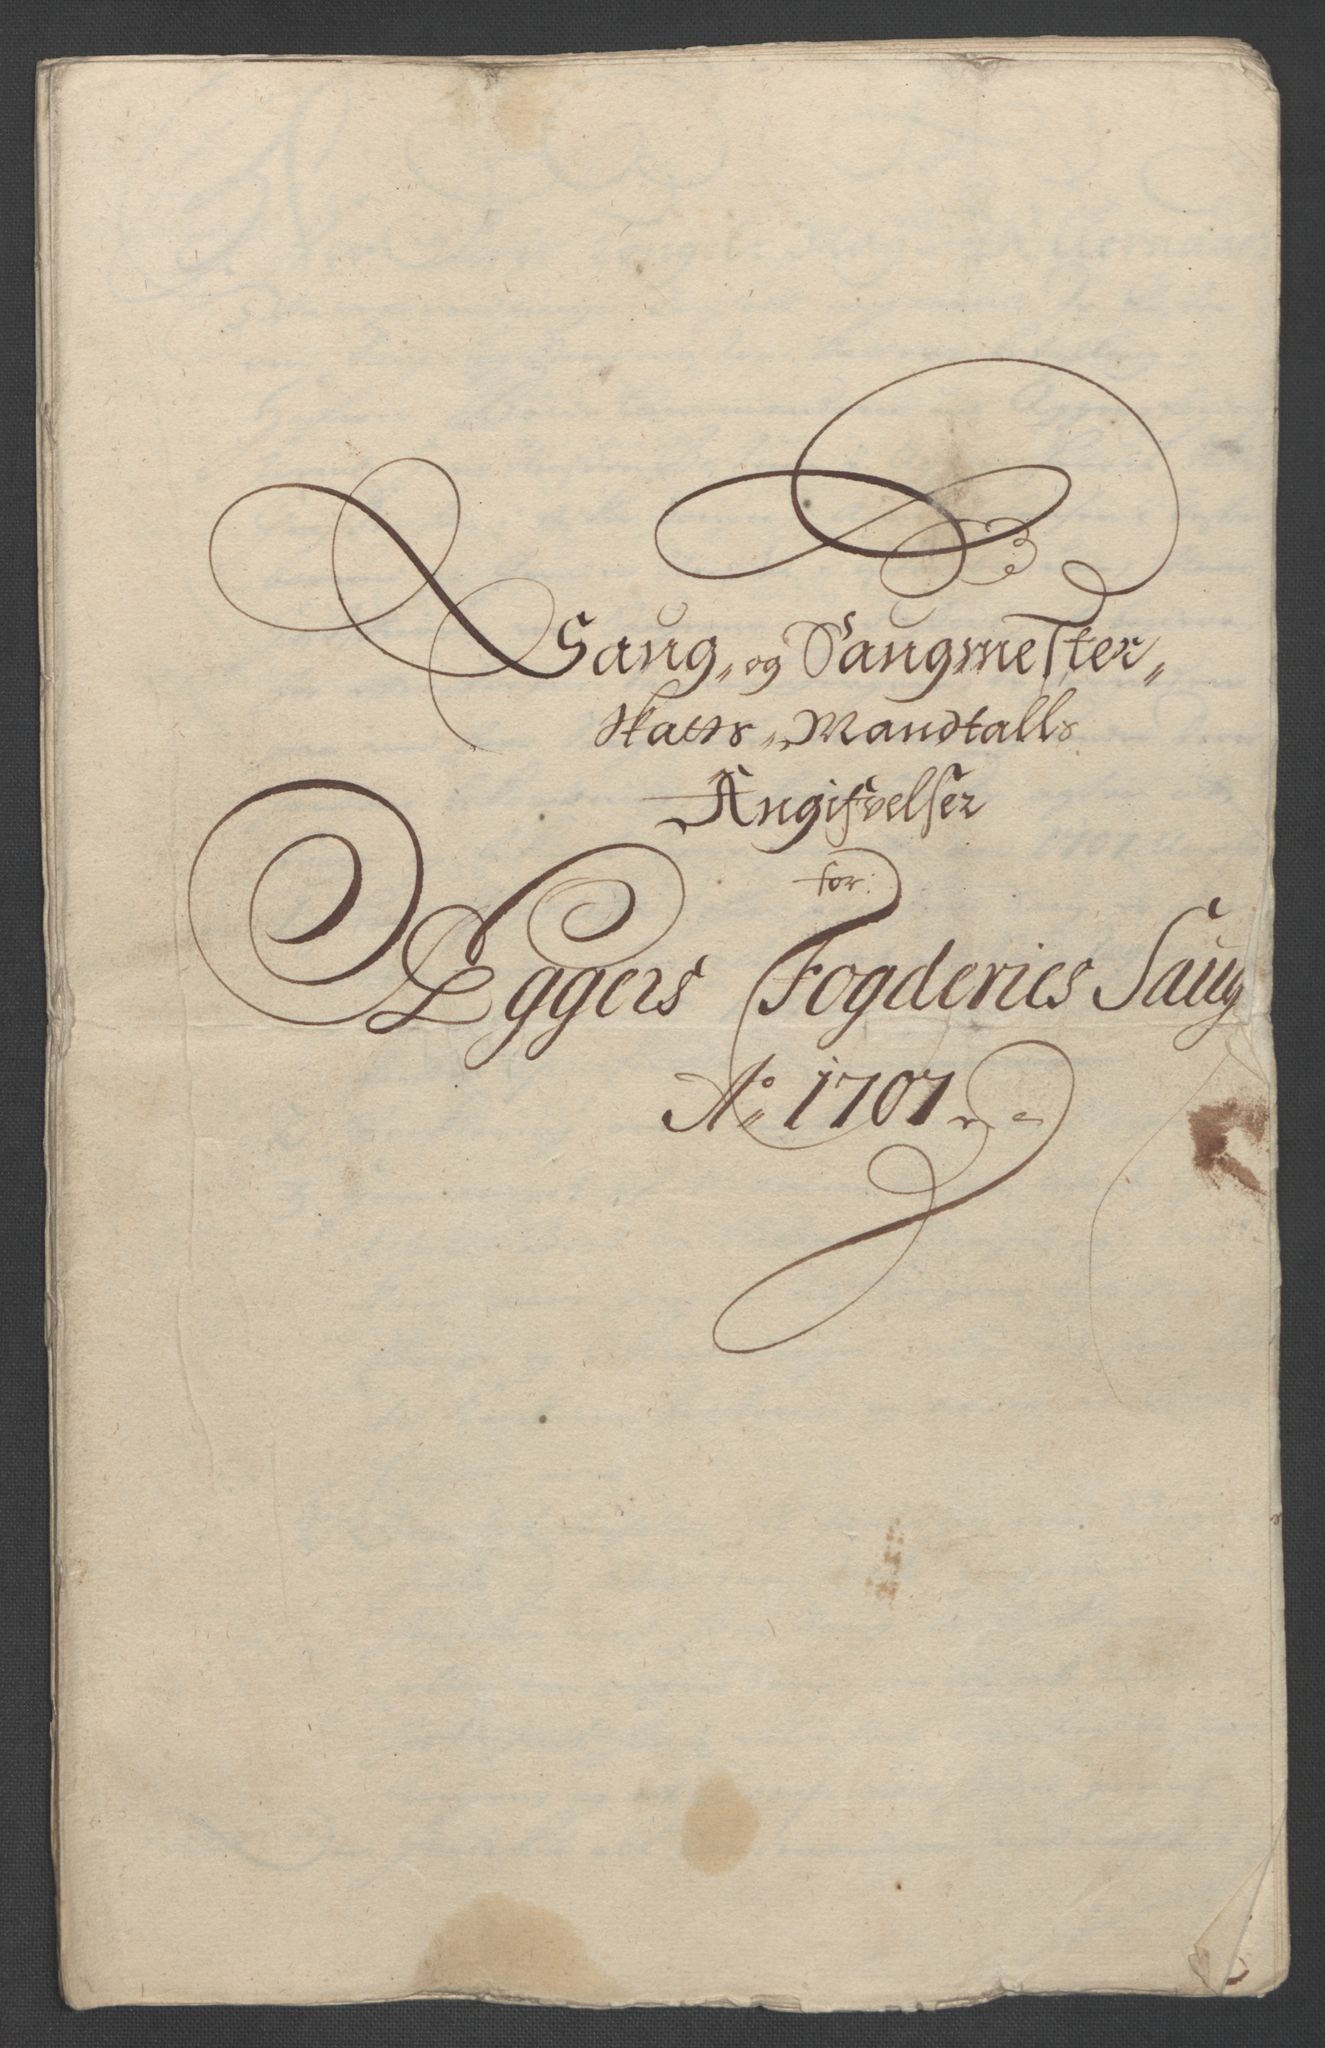 Saug,, og Saugmester,,
Skatts,, Mandtalls
Angifvelser
for:
Eggers Fogderies Saug
Ao,, 1707